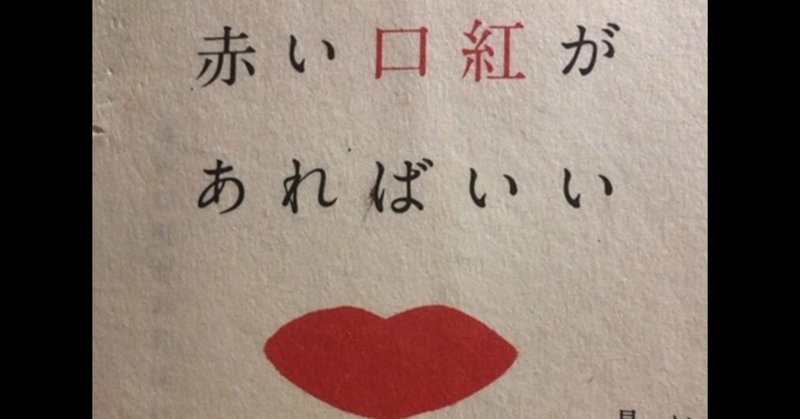 赤い口紅が
あればいい